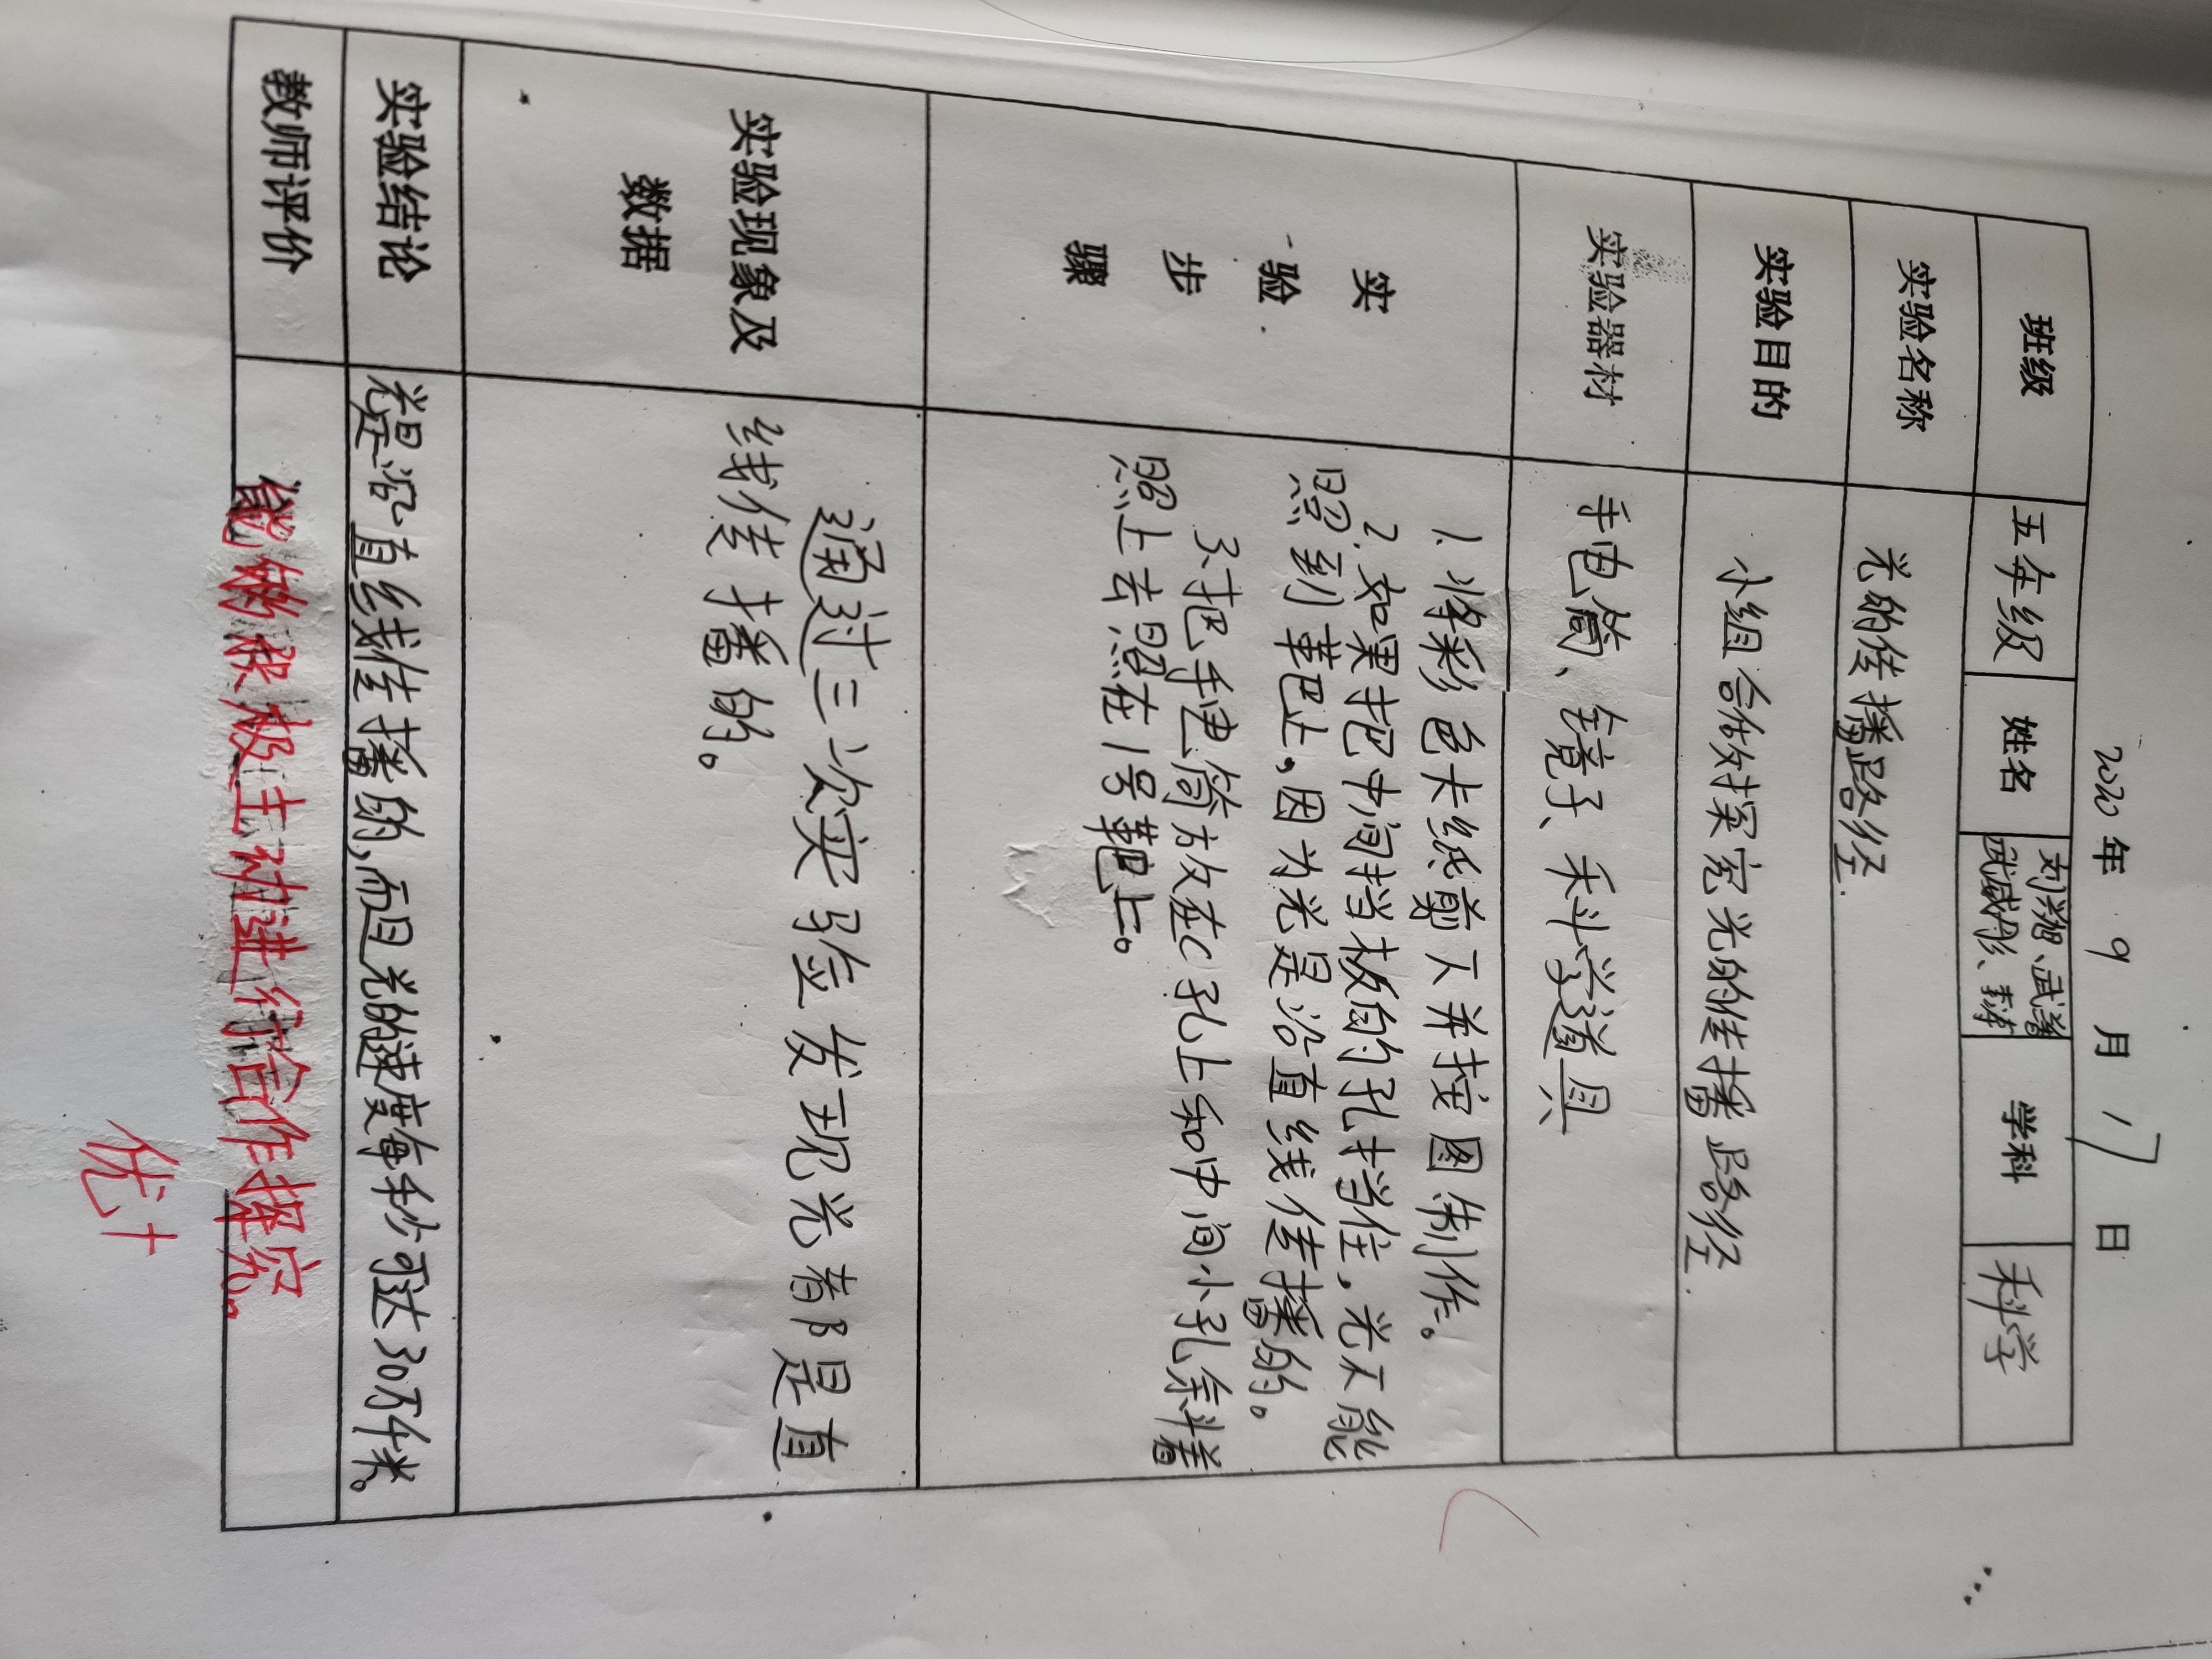 2020年 9 月 17 日
班级 五年级 姓名 刘翔、武 武威彤、 学科 科学
实验名称 光的传播路径.
实验目的 小组合作探究光的传播路径.
实验器材 手电筒、镜子、科学道具
实验步骤
1.将彩色卡纸剪下并按图制作。
2.如果把中间挡板的孔挡住,光不能
照到靶上,因为光是沿直线传播的。
3.把手电筒放在C孔上和中间小孔余斜着
照上去照在1号靶上。
实验现象及
数据
通过三次实验发现光都是直
线传播的。
实验结论 光是沿直线传播的,而且光的速度每秒可达30万千米。
教师评价 能够积极主动进行合作探究。
优+